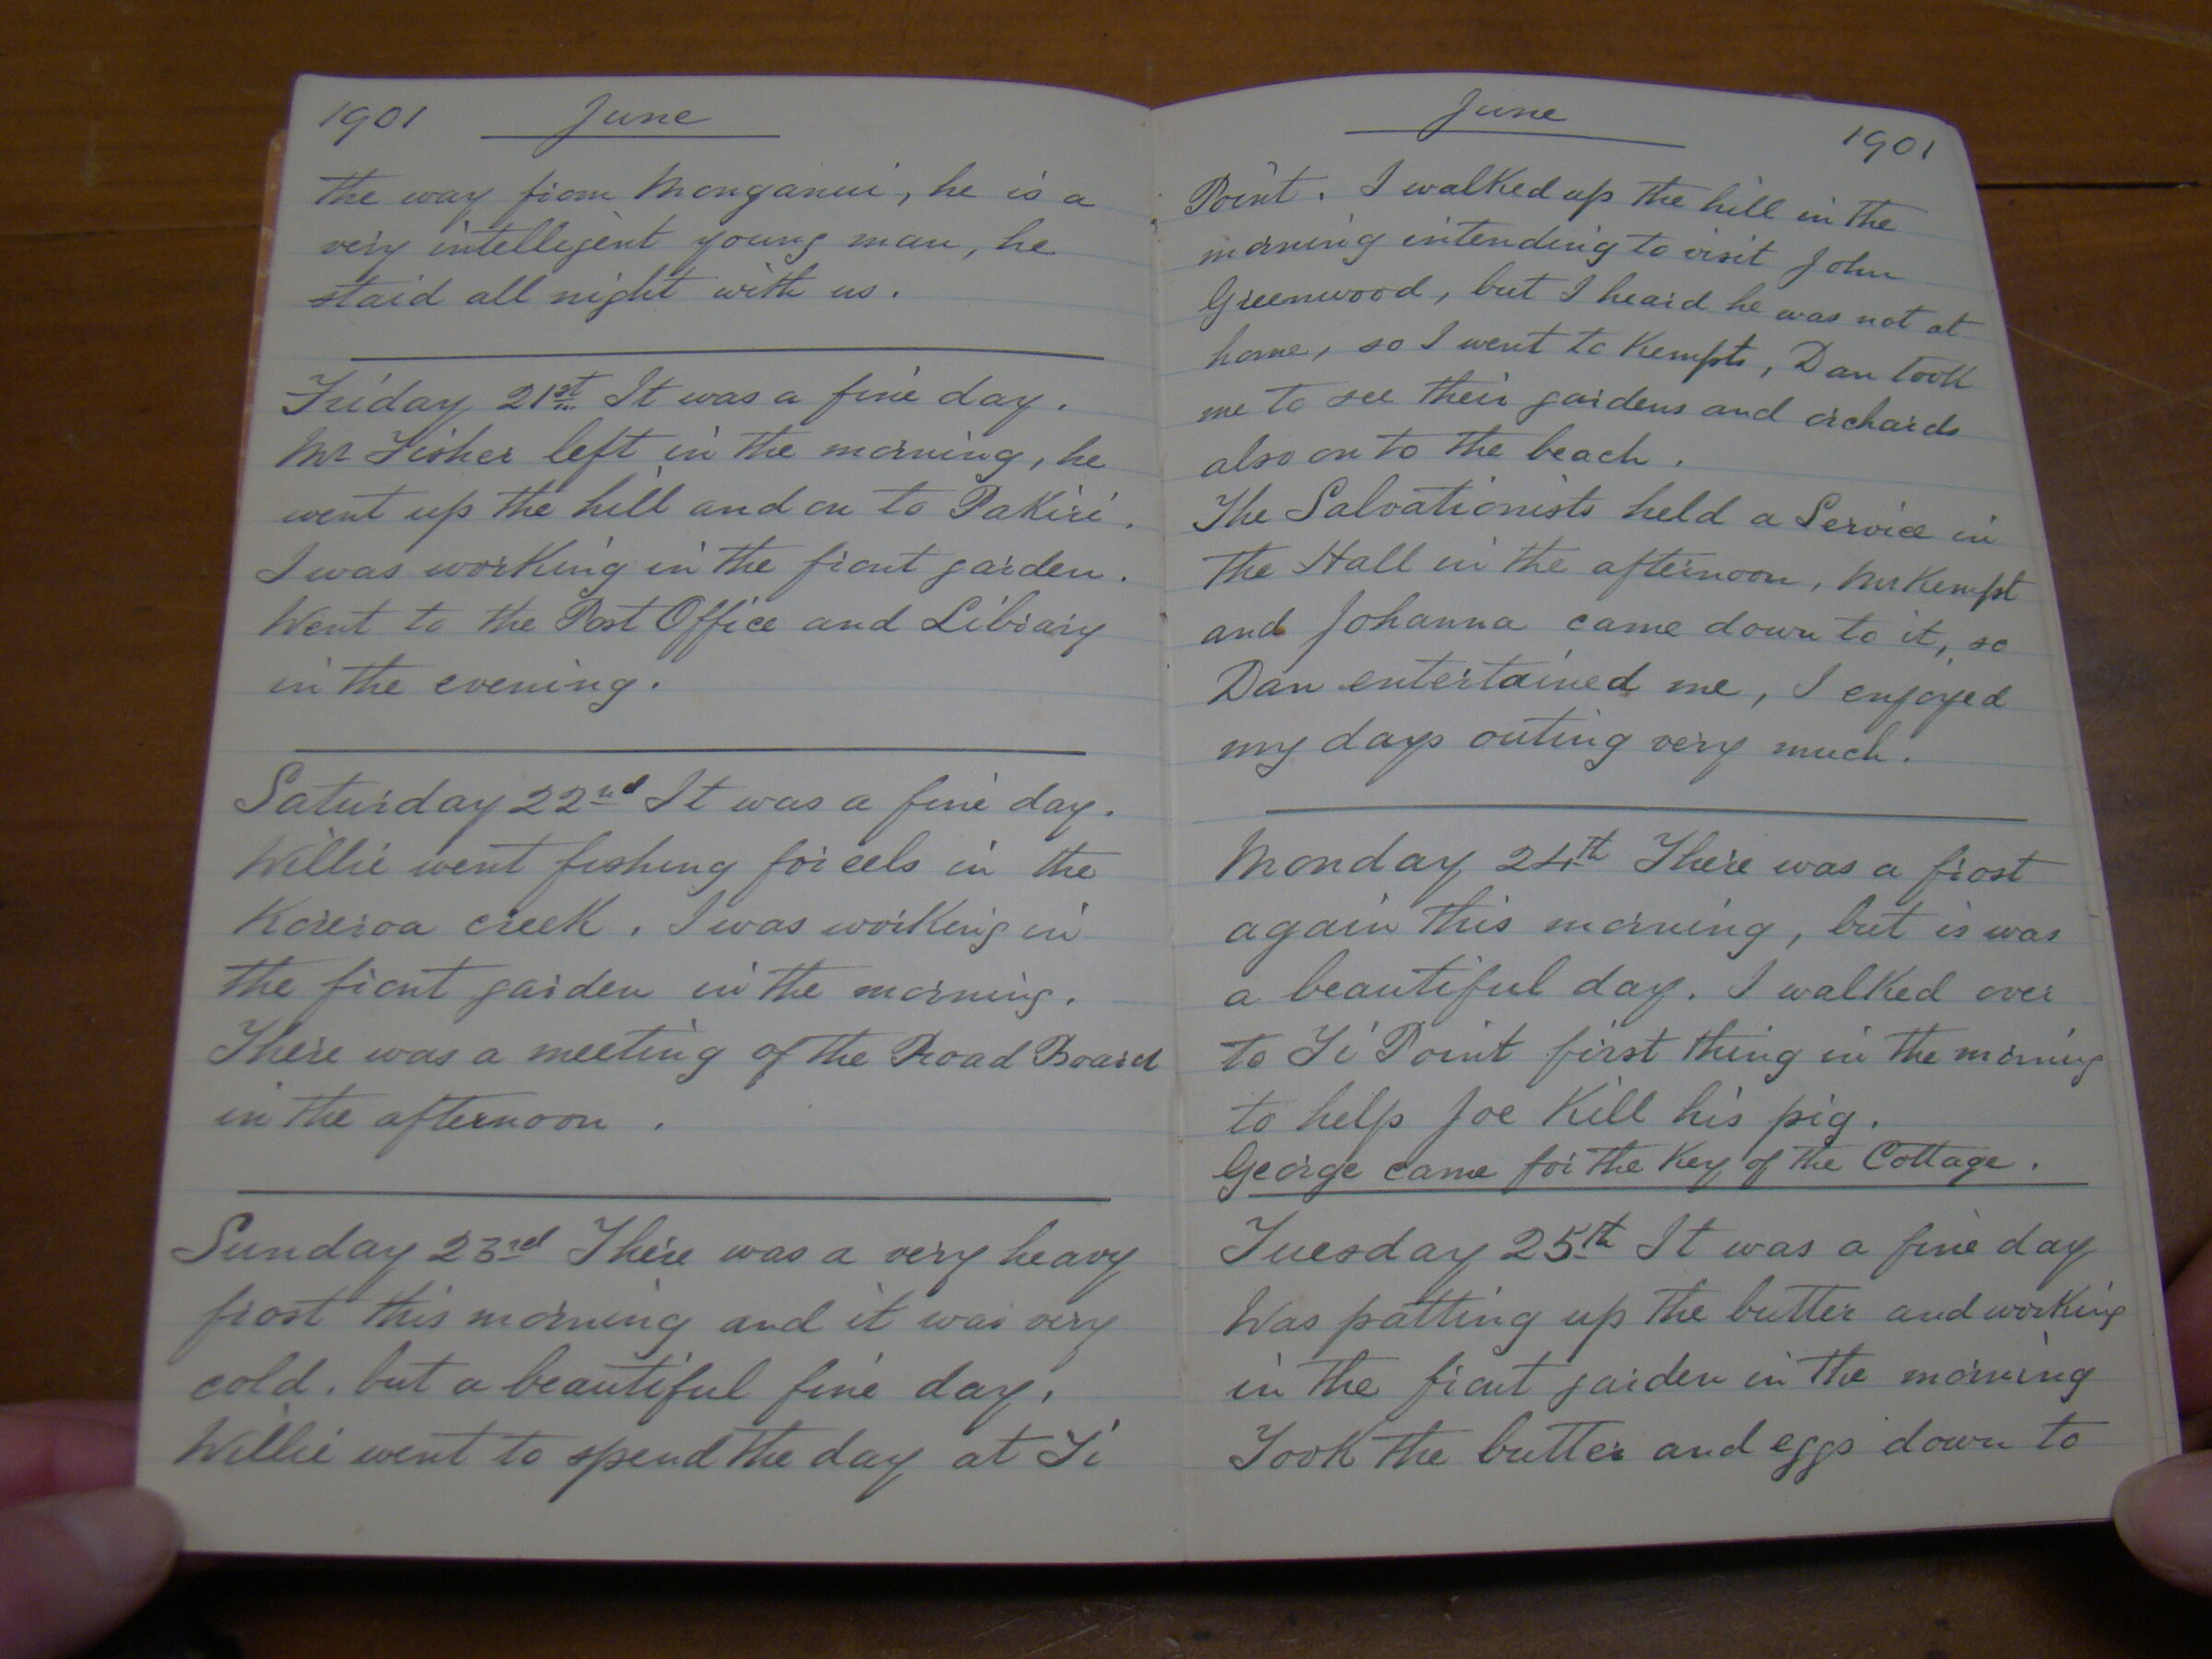 1901 June
the way from Monganui, he is a
very intelligent young man, he
staid all night with us.
Friday 21st It was a fine day.
Mr Fisher left in the morning, he
went up the hill and on to Pakiri.
I was working in the front garden.
Went to the Post Office and Library
in the evening.
Saturday 22nd It was a fine day.
Willie went fishing for eels in the
Koreroa creek. I was working in
the front garden in the morning.
There was a meeting of the Road Board
in the afternoon.
Sunday 23rd There was a very heavy
frost this morning and it was very
cold. but a beautiful fine day.
Willie went to spend the day at Ti
June 1901
Point. I walked up the hill in the
morning intending to visit John
Greenwood, but I heard he was not at
home, so I went to Kempts, Dan took
me to see their gardens and orchards
also on to the beach.
The Salvationists held a Service in
the Hall in the afternoon, Mr Kempt
and Johanna came down to it, so
Dan entertained me, I enjoyed
my days outing very much.
Monday 24th There was a frost
again this morning, but is was
a beautiful day. I walked over
to Ti Point first thing in the morning
to help Joe Kill his pig.
George came for the Key of the Cottage.
Tuesday 25th It was a fine day
Was patting up the butter and working
in the front garden in the morning
Took the butter and eggs down to